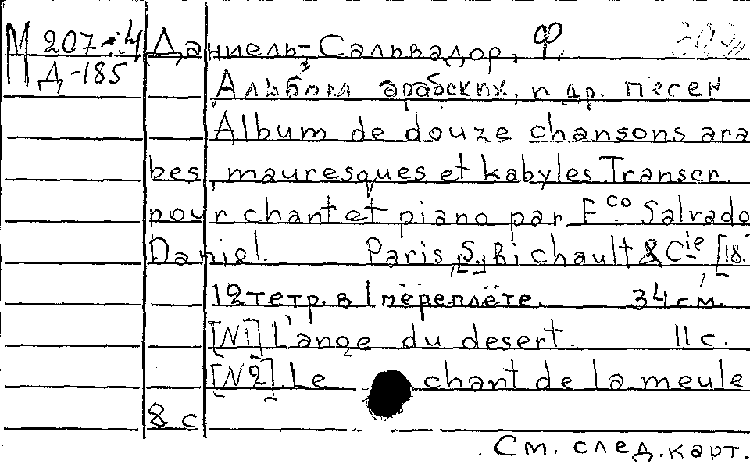 М 207-4 Даниель-Сальвадор, Ф.
Д-185
Альбом арабских, и др. песен
Album de douze chansons ara
bes, mauresques et kabyles Transcr.
pour chant et piano par Fco Salvado
Daniel. Paris, S. Richault & Cie, [18.
12 тетр. в 1 переплёте. 34 см.
[N1] L'ange du desert. 11 с.
[N2] Le chant de la meule
8 с
См. след. карт.